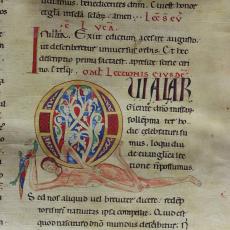 benedicentes dnm. Cui honor
gla in scla sclor. amen. Lec S eu
Luca
Exiit edictum a cesare augusto
ut describeretur universus orbis. Et hec
descriptio prima facta est a preside
no. & reliq. Lectionis eiusde
QUIA LAR
giente dno missaru
sollempnia ter ho
die celebraturi su
mus. loqui diu
de euangelica lec
tione n possumus.
Sed nos aliquid uel breuiter dicere. redep
toris nri natiuitas ipsa compellit. Quid est
quod nascituro dno mundus describitur.